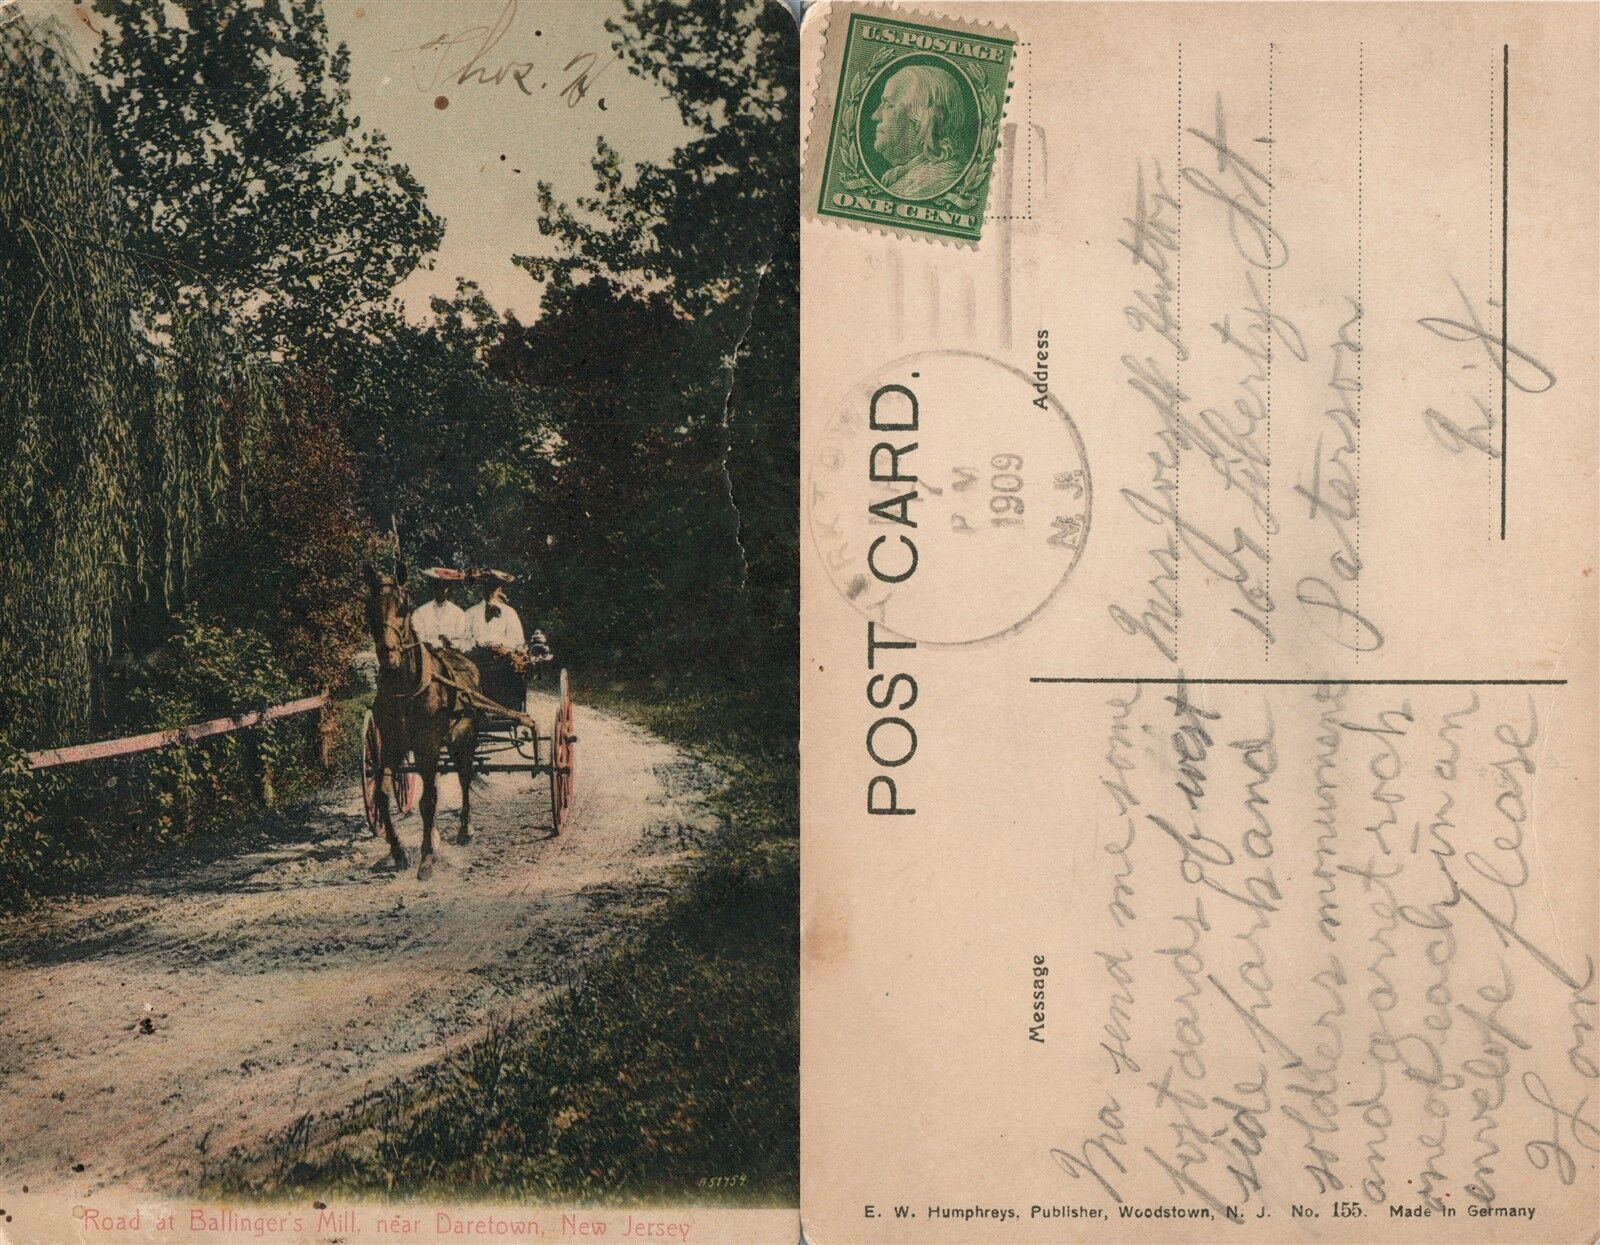 Thos. H.
A51454
Road at Ballinger's Mill, near Daretown, New Jersey
U.S. POSTAGE
ONE CENT
POST CARD.
P M
1909
N. J.
Message
Address
Ma send me some
post cards of west
side park and
solders monument
and garret rock
one of each in an
envelope please
Tom
Mrs Joseph Hutor
109 Liberty St.
Paterson
N. J.
E. W. Humphreys, Publisher, Woodstown, N. J. No. 155. Made in Germany